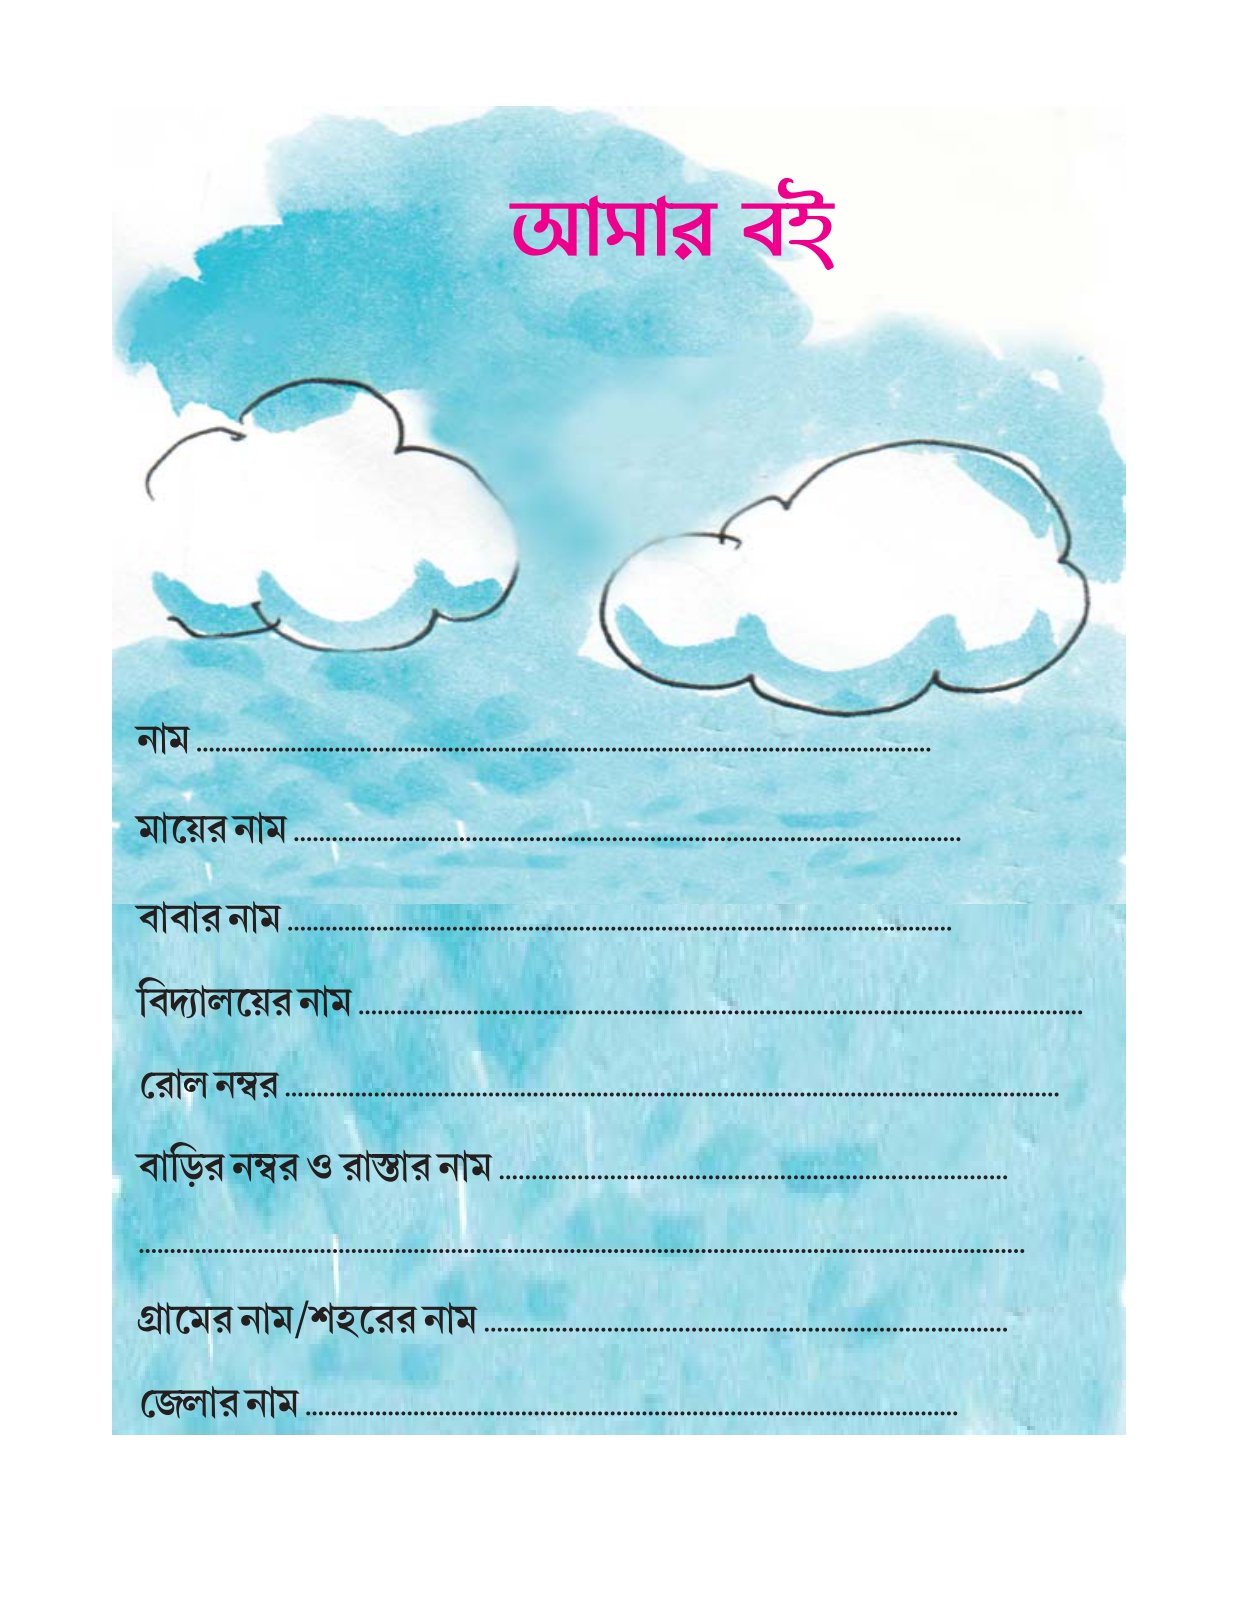 আমার বই
নাম ........................................................................................................................
মায়ের নাম .............................................................................................................
বাবার নাম .............................................................................................................
বিদ্যালয়ের নাম .......................................................................................................................
রোল নম্বর ...............................................................................................................................
বাড়ির নম্বর ও রাস্তার নাম ...................................................................................
.................................................................................................................................................
গ্রামের নাম/শহরের নাম .....................................................................................
জেলার নাম ...........................................................................................................